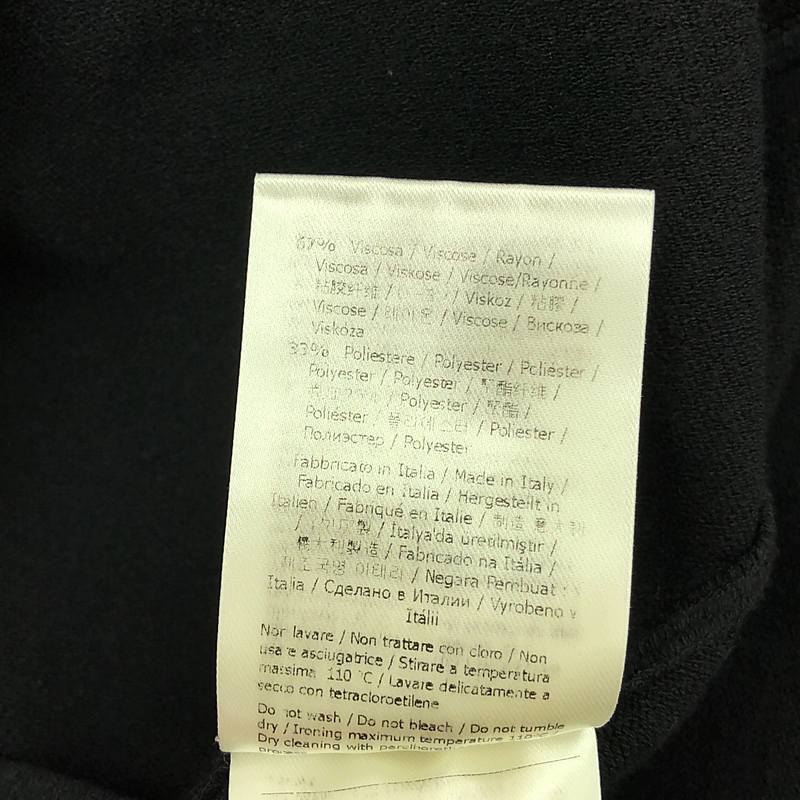 67% Viscosa / Viscose / Rayon /
Viscosa / Viskose / Viscose/Rayonne /
粘胶纤维 / / Viskoz / 粘膠 /
Viscose / 레이온 / Viscose / Вискоза /
Viskóza
33% Poliestere / Polyester / Poliéster /
Polyester / Polyester / 聚酯纤维 /
/ Polyester / 聚酯 /
Poliéster / 폴리에스터 / Poliester /
Полиэстер / Polyester
Fabbricato in Italia / Made in Italy /
Fabricado en Italia / Hergestellt in
Italien / Fabriqué en Italie / 制造 意大利
/ 製 / İtalya'da üretilmiştir /
意大利製造 / Fabricado na Itália /
제조국명 이태리 / Negara Pembuat :
Italia / Сделано в Италии / Vyrobeno v
Itálii
Non lavare / Non trattare con cloro / Non
usare asciugatrice / Stirare a temperatura
massima 110 °C / Lavare delicatamente a
secco con tetracloroetilene
Do not wash / Do not bleach / Do not tumble
dry / Ironing maximum temperature 110°C /
Dry cleaning with